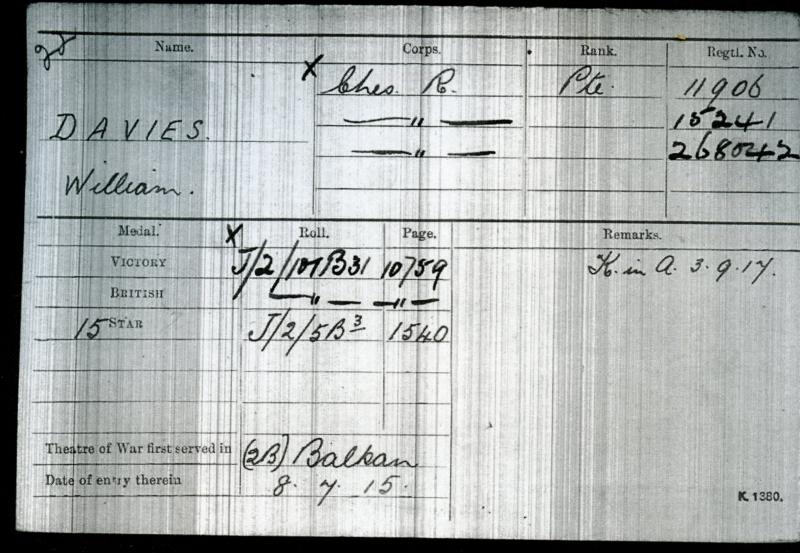 Name. Corps. Rank. Regtl. No.
X Ches. R. Pte. 11906
DAVIES. — " — 15241
— " — 268042
William.
Medal. X Roll. Page. Remarks.
VICTORY J/2/107B31 10759 K. in A. 3.9.17.
BRITISH — " — — " —
15 STAR J/2/5B3 1540
Theatre of War first served in (2B) Balkan
Date of entry therein 8. 7. 15.
K. 1380.